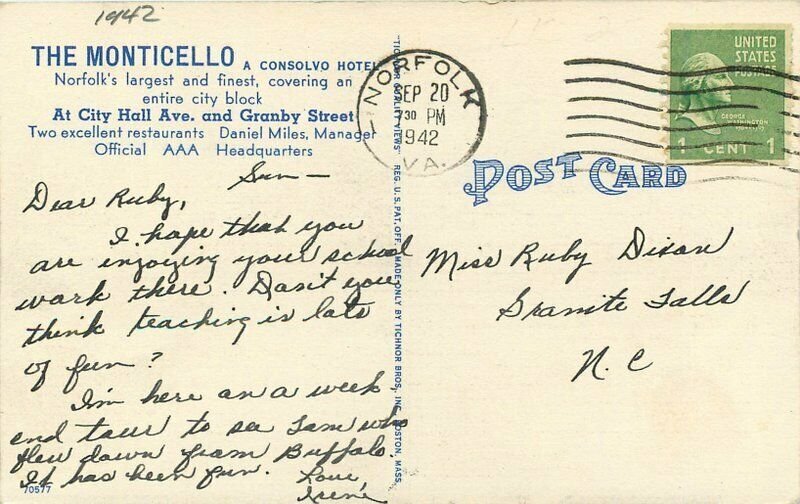 1942
THE MONTICELLO A CONSOLVO HOTEL
Norfolk's largest and finest, covering an
entire city block
At City Hall Ave. and Granby Street
Two excellent restaurants Daniel Miles, Manager
Official AAA Headquarters
Sun—
Dear Ruby,
I hope that you
are injoying your school
work there. Don't you
think teaching is lots
of fun?
I'm here on a week
end tour to see Sam who
flew down from Buffalo.
It has been fun.
Love,
Irene
70577
QUALITY VIEWS" REG. U. S. PAT. OFF. MADE ONLY BY TICHNOR BROS., INC., BOSTON, MASS.
NORFOLK
SEP 20
730 PM
1942
VA.
UNITED
STATES
POSTAGE
GEORGE
WASHINGTON
1 CENT 1
POST CARD
Miss Ruby Dixon
Granite Falls
N. C